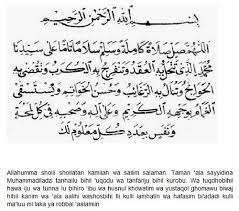 بسم الله الرحمن الرحيم
اللهم صل صلاة كاملة وسلم سلاما تاما على سيدنا
محمد الذي تنحل به العقد وتنفرج به الكرب وتقضى به
الحوائج وتنال به الرغائب وحسن الخواتم ويستسقى
الغمام بوجهه الكريم وعلى اله وصحبه في كل لمحة
ونفس بعدد كل معلوم لك
Allahumma sholli sholatan kamilah wa sallim salaman. Taman 'ala sayyidina
Muhammadiladzi tanhallu bihil 'uqodu wa tanfariju bihil kurobu. Wa tuqdhobihil
hawa iju wa tunna lu bihiro 'ibu wa husnul khowatim wa yustaqol ghomawu biwaj
hihil karim wa 'ala aalihi washosbihi fi kulli lamhatin wa hafasim bi'adadi kulli
ma'luu mi laka ya robbal 'aalamiin